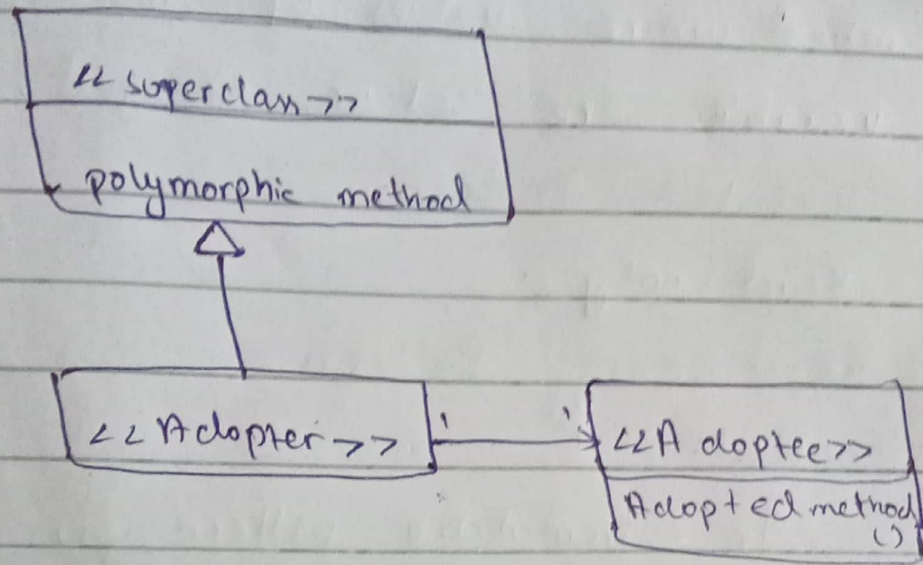 <<superclass>>
polymorphic method
<<Adopter>>
1 1
<<Adoptee>>
Adopted method
()